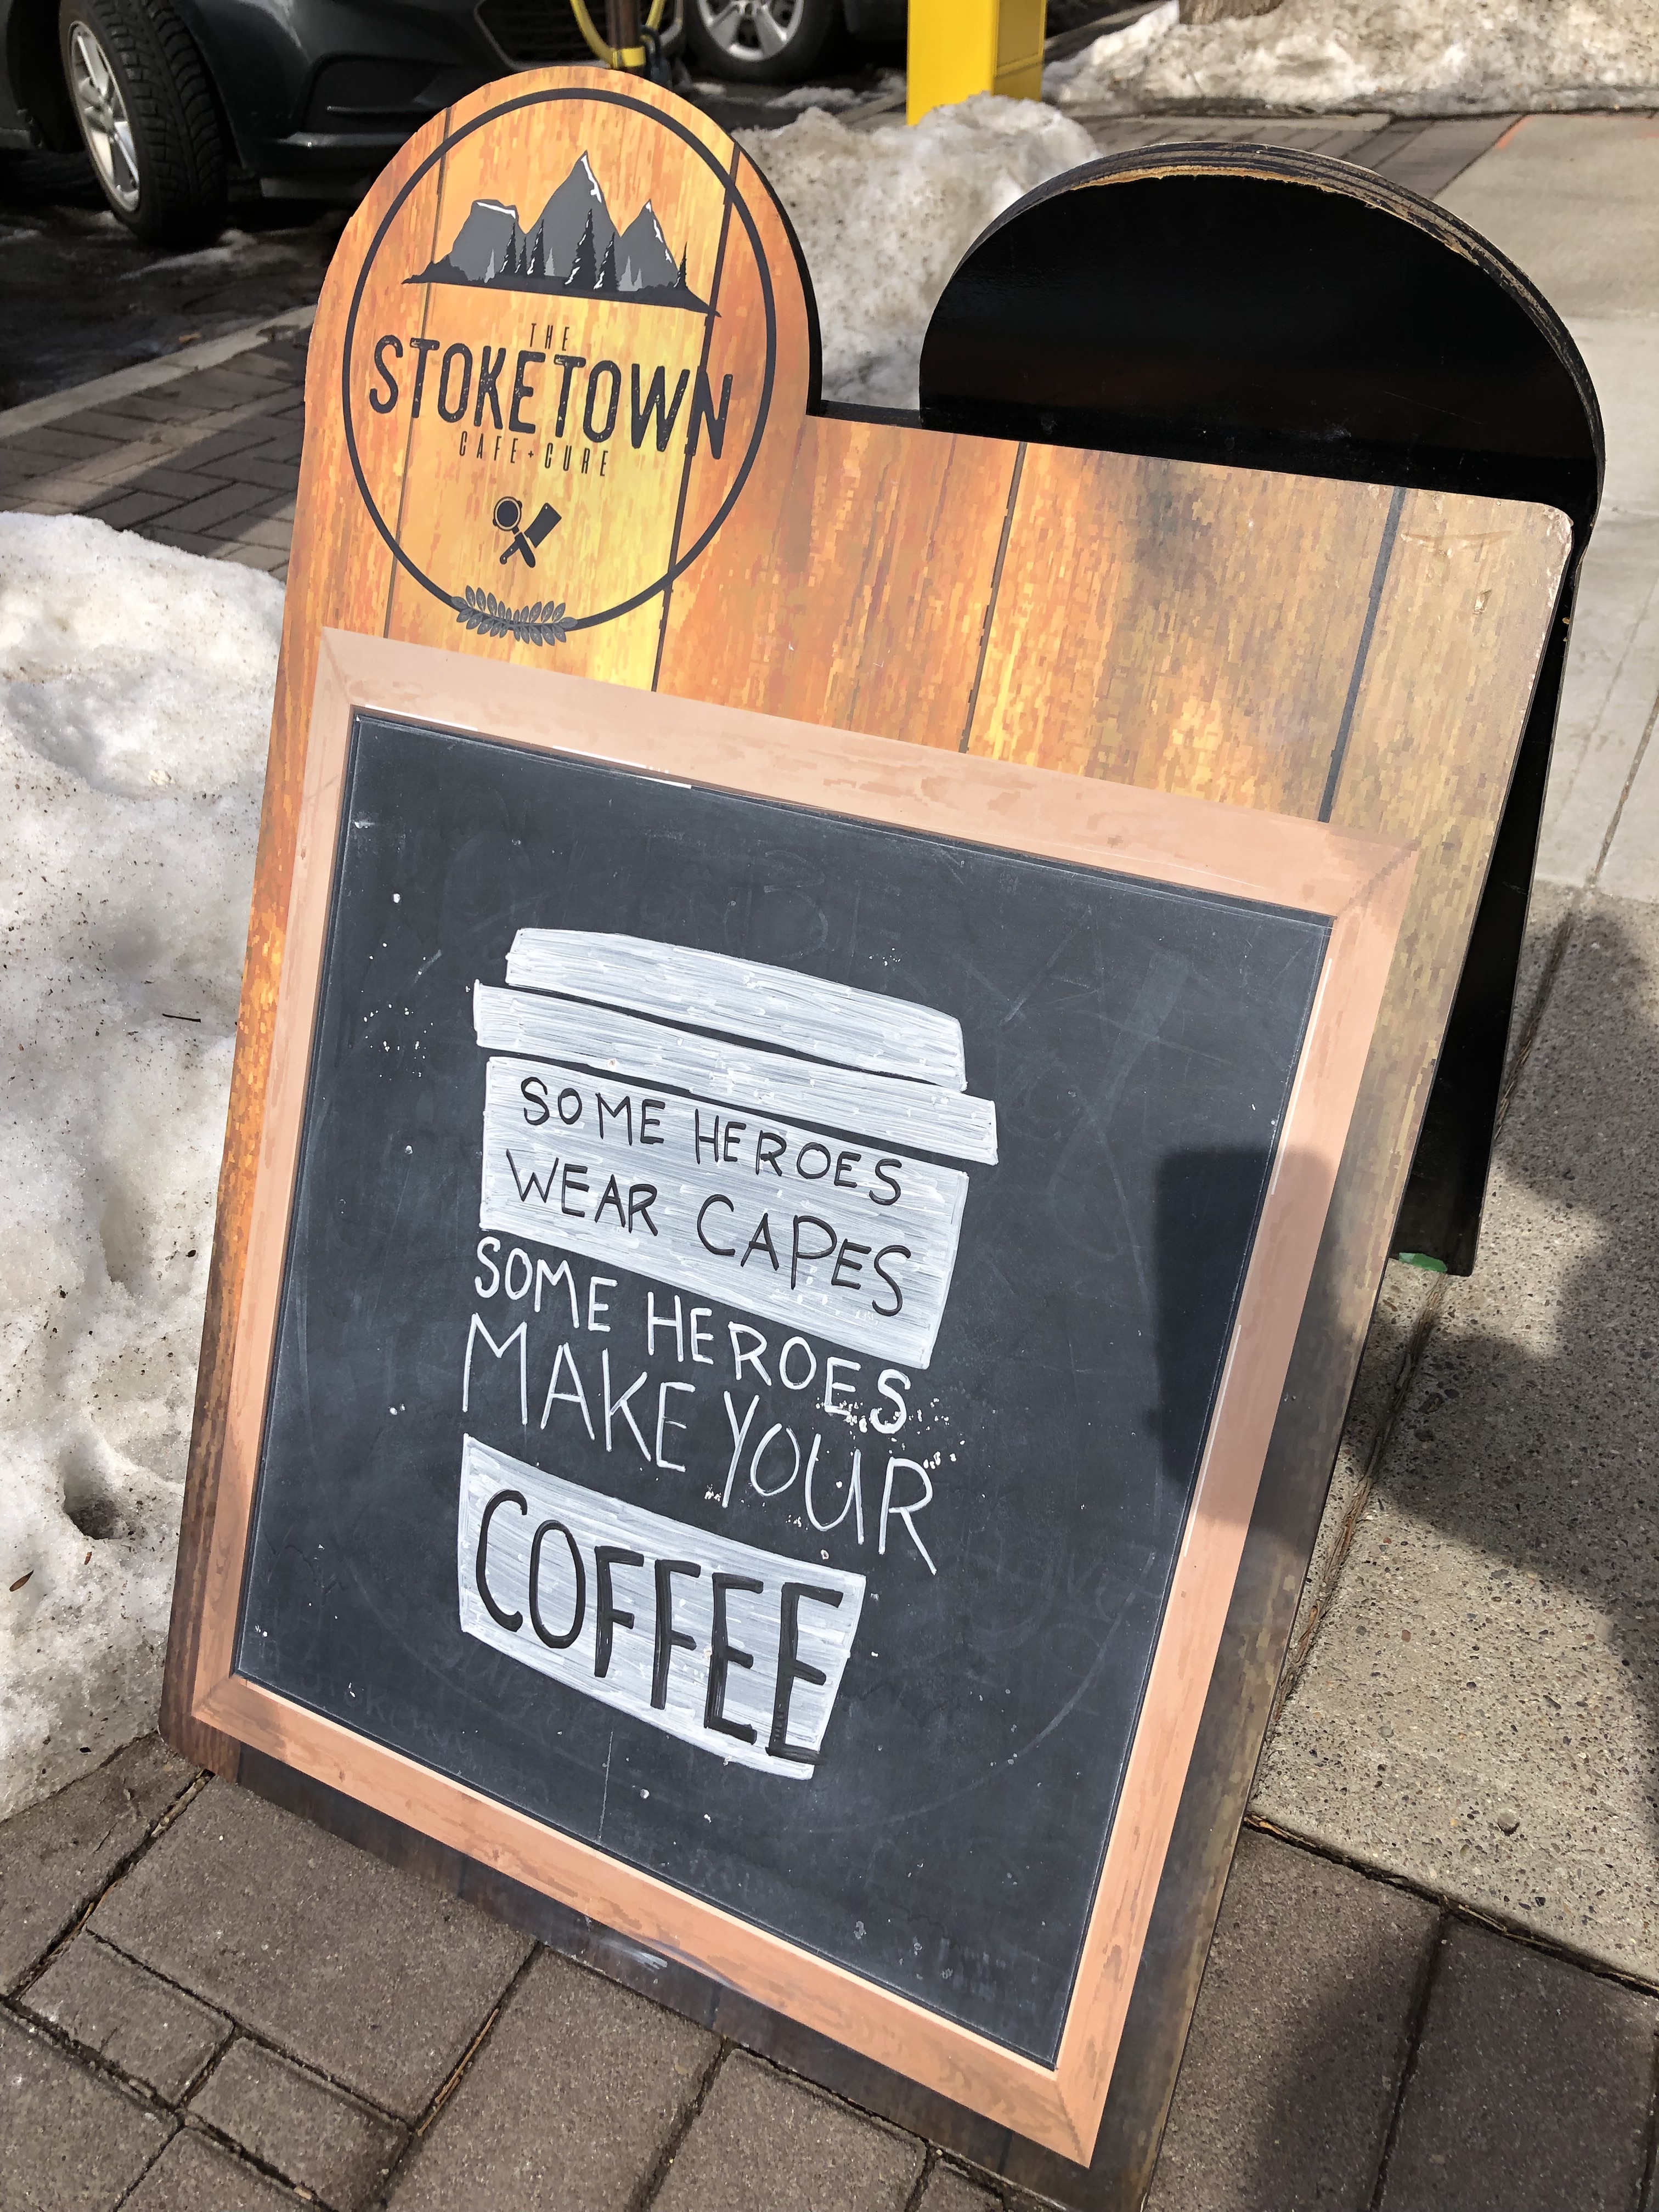 THE
STOKETOWN
CAFE + CURE
SOME HEROES
WEAR CAPES
SOME HEROES
MAKE YOUR
COFFEE